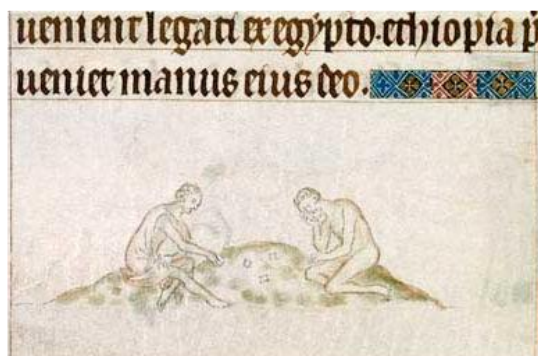 uenient legati ex egypto · ethiopia p
ueniet manus eius deo .